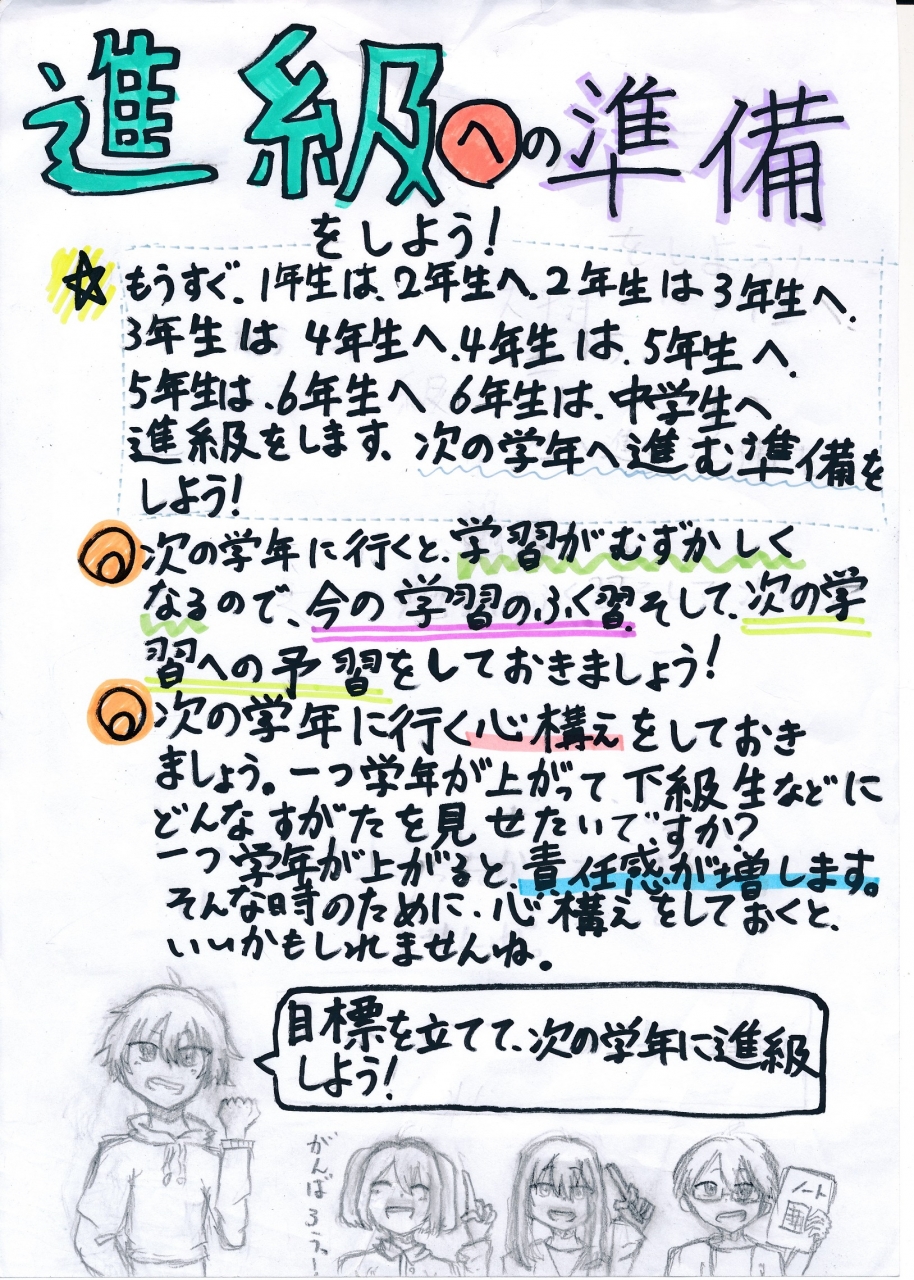 進級への準備
をしよう!
もうすぐ、1年生は、2年生へ、2年生は3年生へ、
3年生は4年生へ、4年生は、5年生へ、
5年生は、6年生へ6年生は、中学生へ
進級をします、次の学年へ進む準備を
しよう!
次の学年に行くと、学習がむずかしく
なるので、今の学習のふく習、そして、次の学
習への予習をしておきましょう!
次の学年に行く心構えをしておき
ましょう。一つ学年が上がって下級生などに
どんなすがたを見せたいですか?
一つ学年が上がると、責任感が増します。
そんな時のために、心構えをしておくと、
いいかもしれませんね。
目標を立てて、次の学年に進級
しよう!
がんばろうっ!
ノート